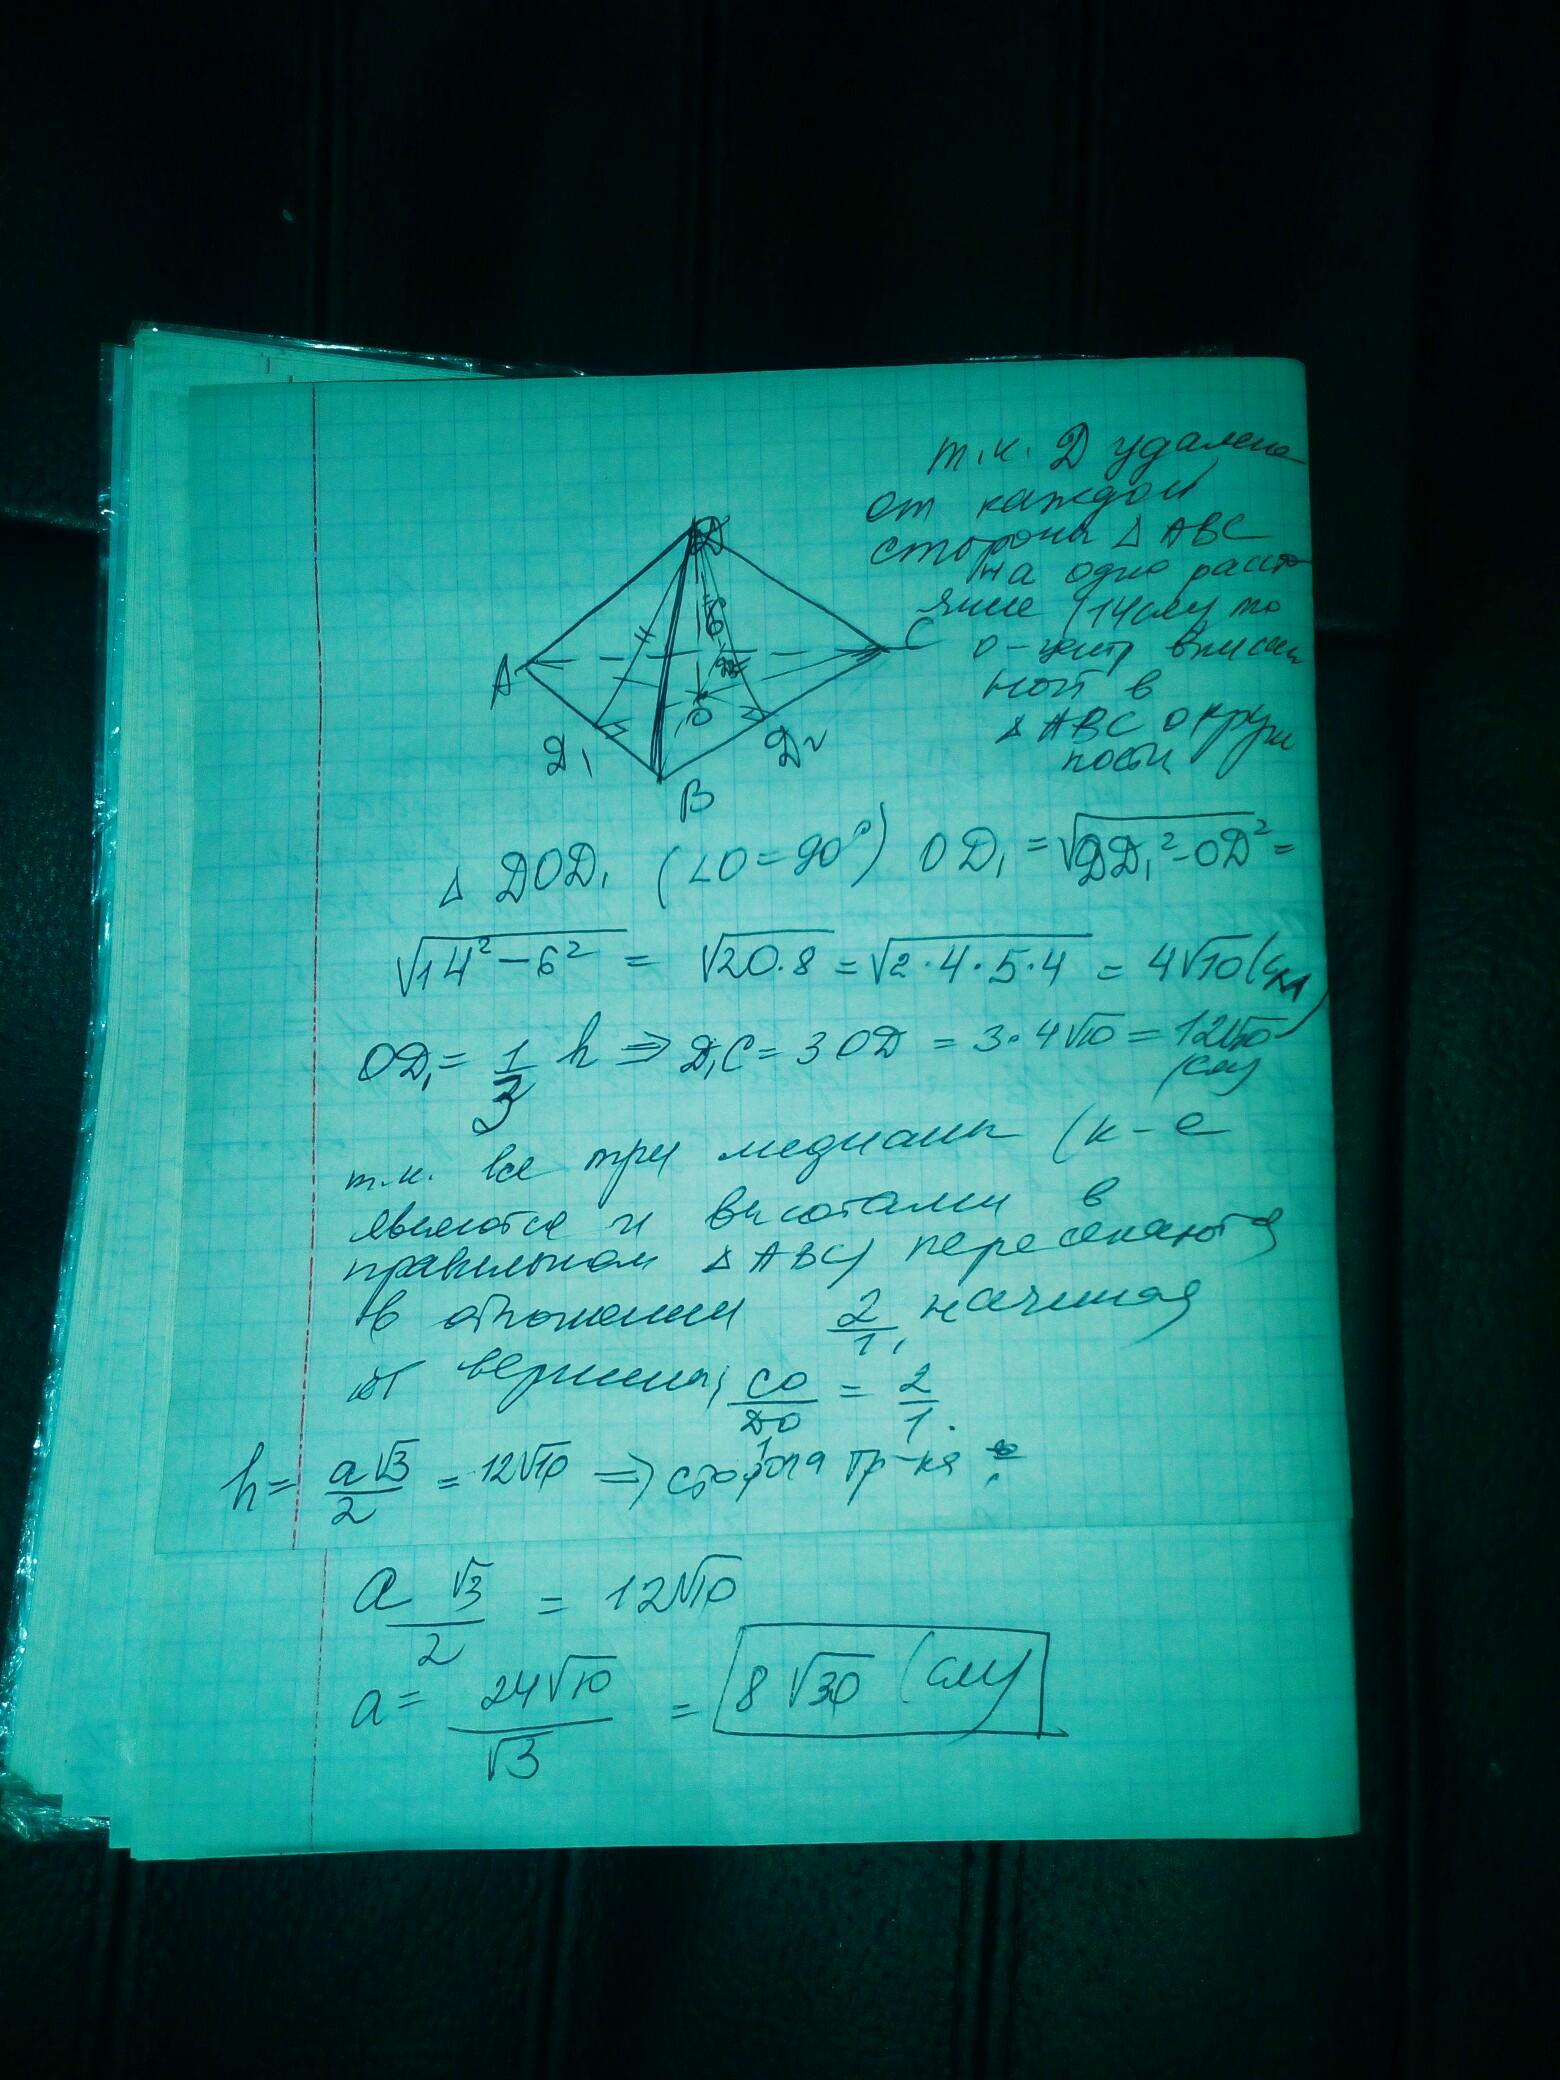 т.к. D удалена
от каждой
стороны △ ABC
на одно расст
яние (14см) то
O-центр вписан
ной в
△ ABC окруж
ности
D
6
A
C
O
D₁
D₂
B
△ DOD₁ (∠O=90°) OD₁ = √DD₁²-OD² =
√14²-6² = √20·8 = √2·4·5·4 = 4√10 (см)
OD₁ = 1/3 h ⇒ D₁C = 3OD = 3·4√10 = 12√10
(см)
т.к. все три медианы (к-е
являются и высотами в
правильном △ ABC) пересекаются
в отношении 2/1, начиная
от вершины, CO/D₁O = 2/1.
h = a√3/2 = 12√10 ⇒ сторона тр-ка
a √3/2 = 12√10
a = 24√10/√3 = 8√30 (см)